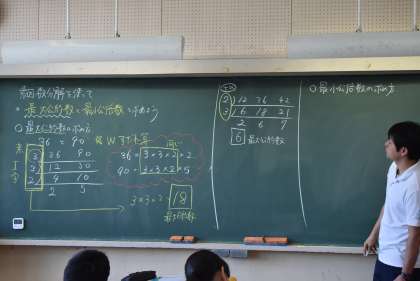 素因数分解を使って
最大公約数と最小公倍数を求めよう
○最大公約数の求め方
36と90
3) 36 90
3) 12 30
2) 4 10
2 5
36=3×3×2×2
90=3×3×2×5
3×3×2=18
最大公約数
2) 12 36 42
3) 6 18 21
2 6 7
6 最大公約数
○最小公倍数の求め方